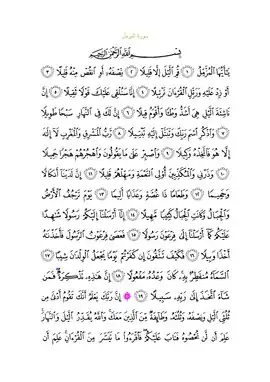 سورة المزمل
بِسْمِ اللَّهِ الرَّحْمَٰنِ الرَّحِيمِ
يَٰٓأَيُّهَا ٱلْمُزَّمِّلُ ١ قُمِ ٱلَّيْلَ إِلَّا قَلِيلًا ٢ نِّصْفَهُۥٓ أَوِ ٱنقُصْ مِنْهُ قَلِيلًا ٣
أَوْ زِدْ عَلَيْهِ وَرَتِّلِ ٱلْقُرْءَانَ تَرْتِيلًا ٤ إِنَّا سَنُلْقِى عَلَيْكَ قَوْلًا ثَقِيلًا ٥ إِنَّ
نَاشِئَةَ ٱلَّيْلِ هِىَ أَشَدُّ وَطْـًٔا وَأَقْوَمُ قِيلًا ٦ إِنَّ لَكَ فِى ٱلنَّهَارِ سَبْحًا طَوِيلًا ٧
وَٱذْكُرِ ٱسْمَ رَبِّكَ وَتَبَتَّلْ إِلَيْهِ تَبْتِيلًا ٨ رَّبُّ ٱلْمَشْرِقِ وَٱلْمَغْرِبِ لَآ إِلَٰهَ
إِلَّا هُوَ فَٱتَّخِذْهُ وَكِيلًا ٩ وَٱصْبِرْ عَلَىٰ مَا يَقُولُونَ وَٱهْجُرْهُمْ هَجْرًا جَمِيلًا
١٠ وَذَرْنِى وَٱلْمُكَذِّبِينَ أُو۟لِى ٱلنَّعْمَةِ وَمَهِّلْهُمْ قَلِيلًا ١١ إِنَّ لَدَيْنَآ أَنكَالًا
وَجَحِيمًا ١٢ وَطَعَامًا ذَا غُصَّةٍ وَعَذَابًا أَلِيمًا ١٣ يَوْمَ تَرْجُفُ ٱلْأَرْضُ
وَٱلْجِبَالُ وَكَانَتِ ٱلْجِبَالُ كَثِيبًا مَّهِيلًا ١٤ إِنَّآ أَرْسَلْنَآ إِلَيْكُمْ رَسُولًا شَٰهِدًا
عَلَيْكُمْ كَمَآ أَرْسَلْنَآ إِلَىٰ فِرْعَوْنَ رَسُولًا ١٥ فَعَصَىٰ فِرْعَوْنُ ٱلرَّسُولَ فَأَخَذْنَٰهُ
أَخْذًا وَبِيلًا ١٦ فَكَيْفَ تَتَّقُونَ إِن كَفَرْتُمْ يَوْمًا يَجْعَلُ ٱلْوِلْدَٰنَ شِيبًا ١٧
ٱلسَّمَآءُ مُنفَطِرٌۢ بِهِۦ كَانَ وَعْدُهُۥ مَفْعُولًا ١٨ إِنَّ هَٰذِهِۦ تَذْكِرَةٌ فَمَن
شَآءَ ٱتَّخَذَ إِلَىٰ رَبِّهِۦ سَبِيلًا ١٩ إِنَّ رَبَّكَ يَعْلَمُ أَنَّكَ تَقُومُ أَدْنَىٰ مِن
ثُلُثَىِ ٱلَّيْلِ وَنِصْفَهُۥ وَثُلُثَهُۥ وَطَآئِفَةٌ مِّنَ ٱلَّذِينَ مَعَكَ وَٱللَّهُ يُقَدِّرُ ٱلَّيْلَ وَٱلنَّهَارَ
عَلِمَ أَن لَّن تُحْصُوهُ فَتَابَ عَلَيْكُمْ فَٱقْرَءُوا۟ مَا تَيَسَّرَ مِنَ ٱلْقُرْءَانِ عَلِمَ أَن